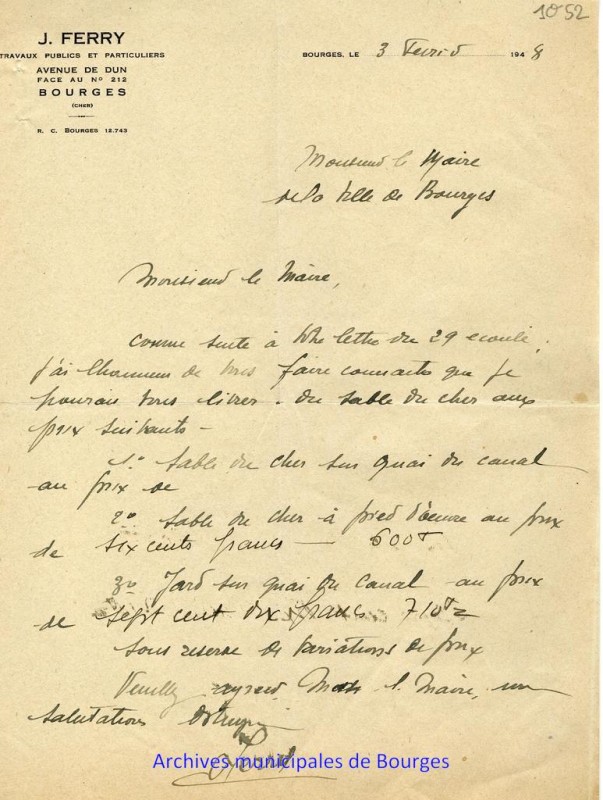 1052
J. FERRY
TRAVAUX PUBLICS ET PARTICULIERS
AVENUE DE DUN
FACE AU Nº 212
BOURGES
(CHER)
R. C. BOURGES 12.743
BOURGES, LE 3 1948
Monsieur le Maire
de la Ville de Bourges
Monsieur le Maire,
comme suite à votre lettre du 29 écoulé,
j'ai l'honneur de vous faire connaitre que je
pourrais vous livrer du sable du cher aux
prix suivants -
1º sable du cher sur quai du canal
au prix de
2º sable du cher à pied d'oeuvre au prix
de six cents francs — 600
3º Jard sur quai du canal au prix
de sept cent dix francs 710
sous reserve de variations de prix
Veuillez Maire,
salutations
Archives municipales de Bourges